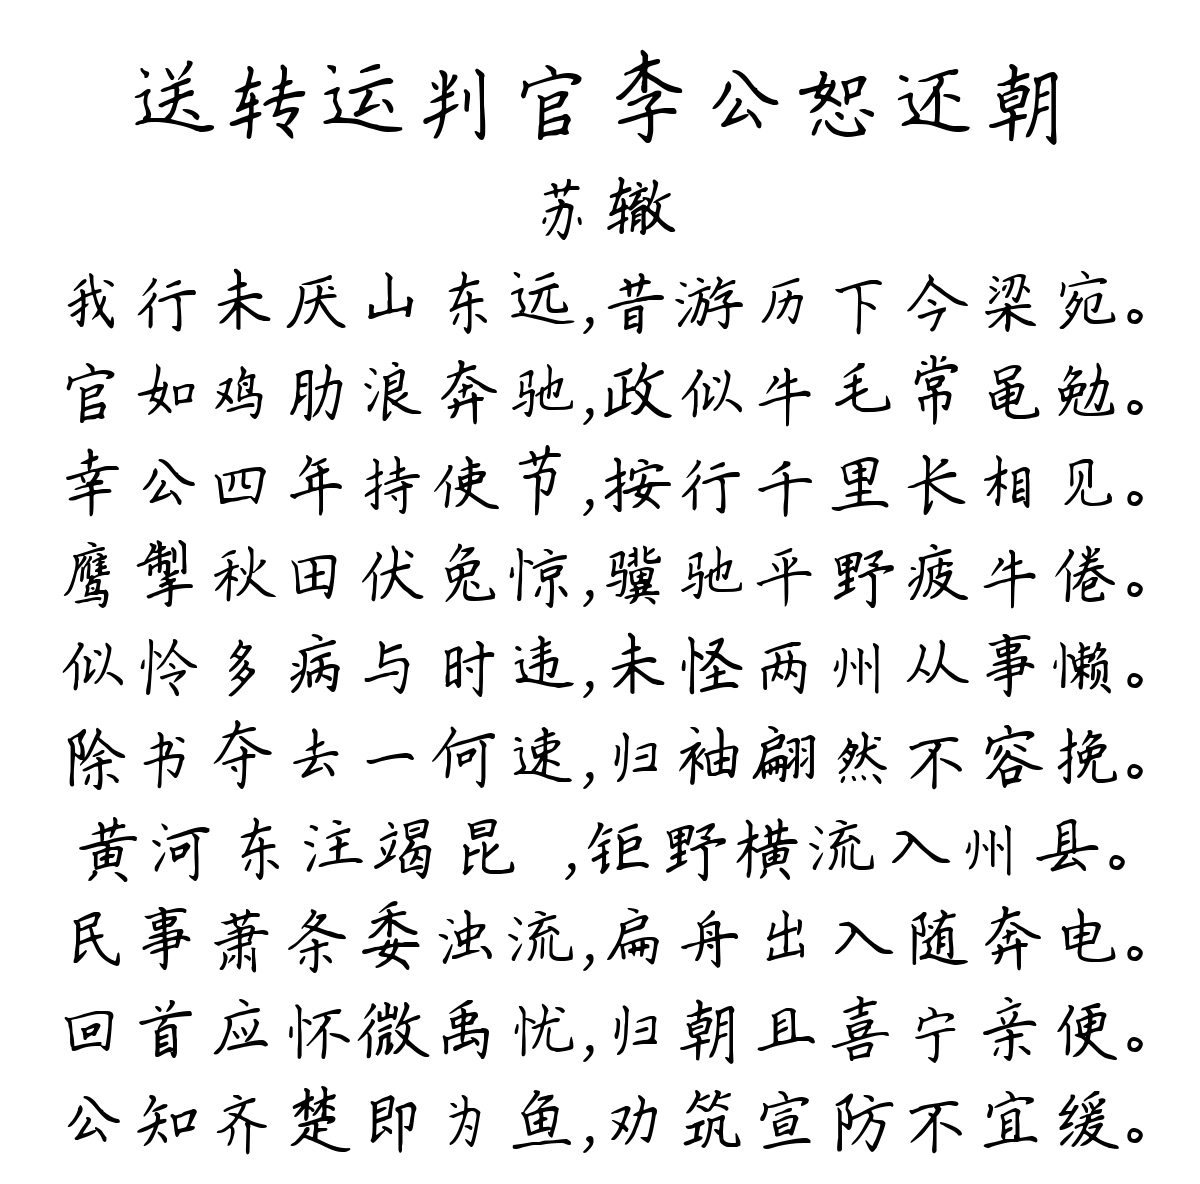 送转运判官李公恕还朝
苏辙
我行未厌山东远,昔游历下今梁宛。
官如鸡肋浪奔驰,政似牛毛常黾勉。
幸公四年持使节,按行千里长相见。
鹰掣秋田伏兔惊,骥驰平野疲牛倦。
似怜多病与时违,未怪两州从事懒。
除书夺去一何速,归袖翩然不容挽。
黄河东注竭昆 ,钜野横流入州县。
民事萧条委浊流,扁舟出入随奔电。
回首应怀微禹忧,归朝且喜宁亲便。
公知齐楚即为鱼,劝筑宣防不宜缓。